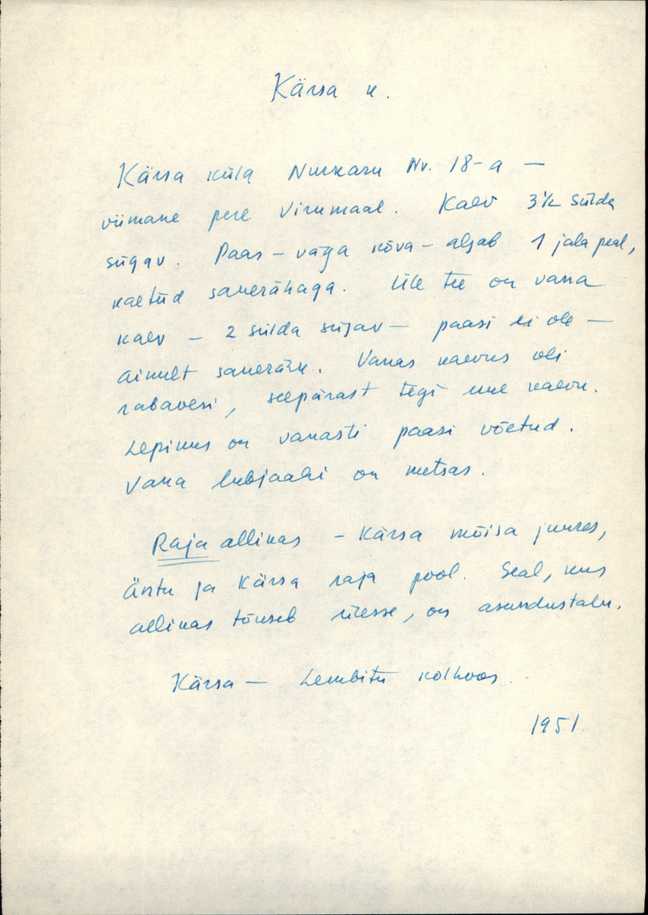 Kärsa k.
Kärsa küla Nurkaru Nr. 18-a —
viimane pere Virumaal. Kaev 3½ sülda
sügav. Paas – väga kõva – algab 1 jala peal,
kaetud saverähaga. Üle tee on vana
kaev – 2 sülda sügav – paasi ei ole –
ainult saverähk. Vanas kaevus oli
rabavesi, seepärast tegi uue kaevu.
Lepikus on vanasti paasi võetud.
Vana lubjaahi on metsas.
Raja allikas – Kärsa mõisa juures,
Äntu ja Kärsa raja pool. Seal, kus
allikas tõuseb ülesse, on asundustalu.
Kärsa – Lembitu kolhoos.
1951